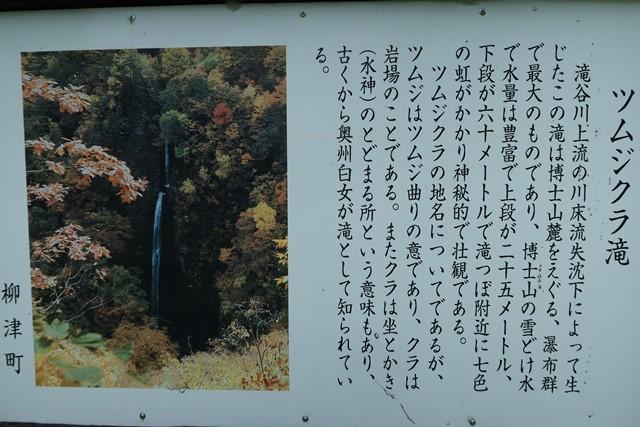 ツムジクラ滝
滝谷川上流の川床流失沈下によって生
じたこの滝は博士山麓をえぐる、瀑布群
で最大のものであり、博士山の雪どけ水
で水量は豊富で上段が二十五メートル、
下段が六十メートルで滝つぼ附近に七色
の虹がかかり神秘的で壮観である。
ツムジクラの地名についてであるが、
ツムジはツムジ曲りの意であり、クラは
岩場のことである。またクラは坐とかき
(水神)のとどまる所という意味もあり、
古くから奥州白女が滝として知られてい
る。
柳津町